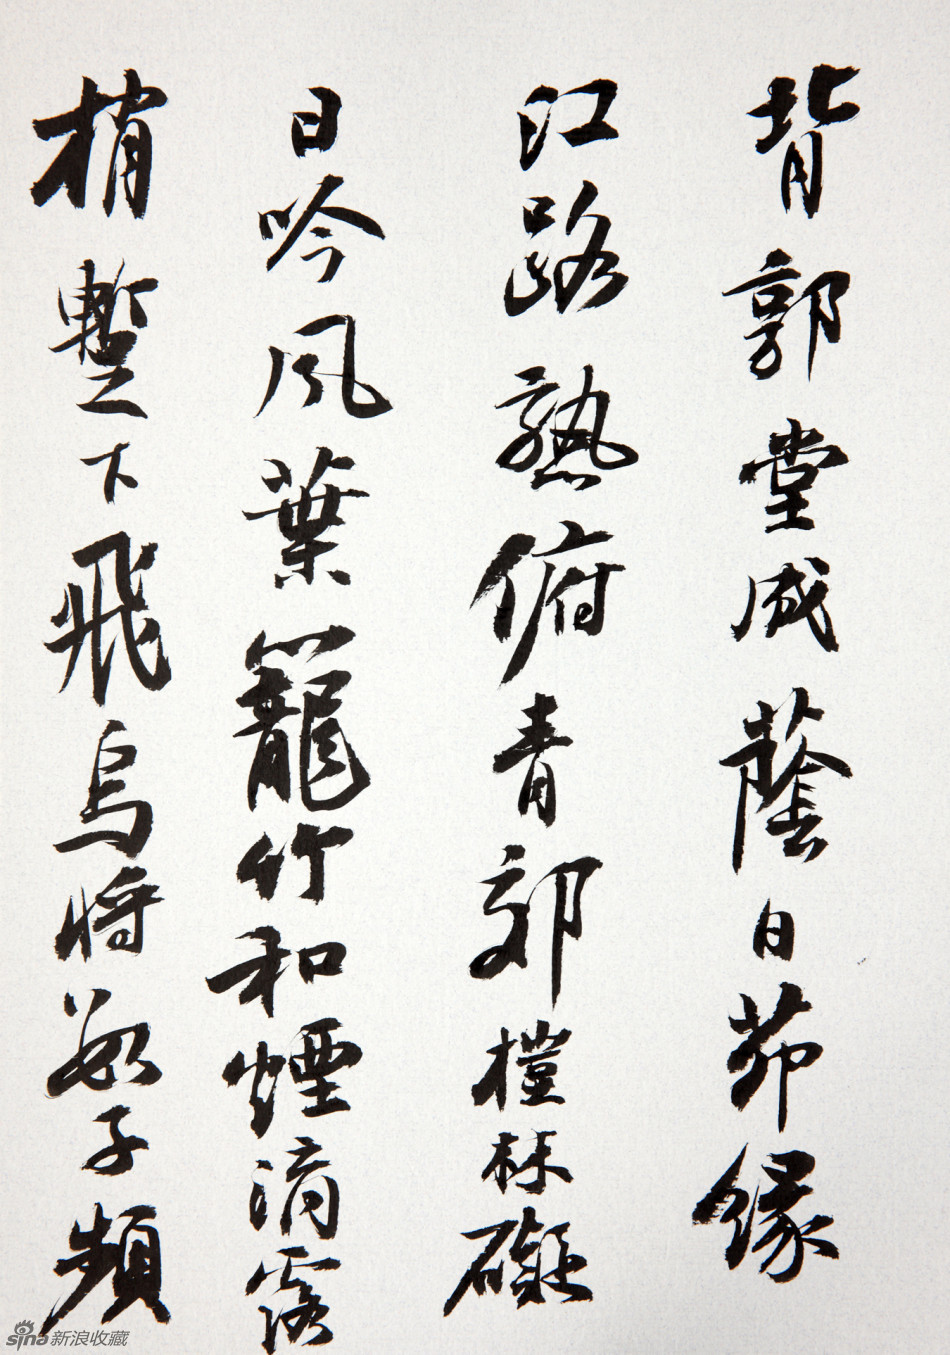 背郭堂成蔭白茆緣
江路熟俯青郊榿林礙
日吟風葉籠竹和煙滴露
梢暫下飛烏將數子頻
sina新浪收藏